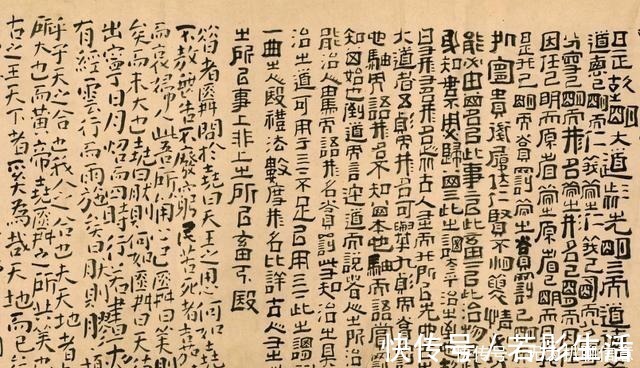 是故古之明大道者先明天而道德
道德已明而仁義次之仁義已明而
分守已明而形名次之形名已明而
因任已明而原省次之原省已明而
是非已明而賞罰次之賞罰已明
知處宜貴賤履位仁賢不肖襲情
能必由其名以此事上以此畜下以此治物
知謀不用必歸其天此之謂太平治之至也
曰有形有名形名者古人有之而非所以先也
大道者五變而形名可舉九變而賞
也驟而語形名不知其本也驟而語賞罰
知其始也倒道而言迕道而說者人之所治
能治人驟而語形名賞罰此有知治之具
治之道可用於天下不足以用天下此之謂
一曲之人也禮法數度形名比詳古人有之
下之所以事上非上之所以畜下也
昔者舜問於堯曰天王之用心何如堯曰
不敖無告不廢窮民苦死者嘉
而哀婦人此吾所以用心已舜曰美則
矣而未大也堯曰然則何如舜曰天德
出寧日月照而四時行若晝夜
有經雲行而雨施矣堯曰然則膠
乎子天之合也我人之合也夫天地者
所大也而黃帝堯舜之所共美也
古之王天下者奚為哉天地而已
快传号/若彤生活